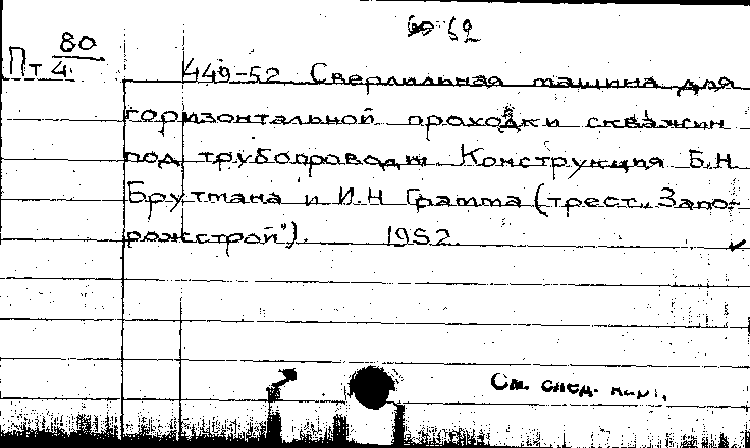 52
80
Пт 4.
449-52 Сверлильная машина для
горизонтальной проходки скважин
под трубопроводы. Конструкция Б.Н.
Брутмана и И.Н. Грамма (трест „Запо-
рожстрой"). 1952.
См. след. карт.